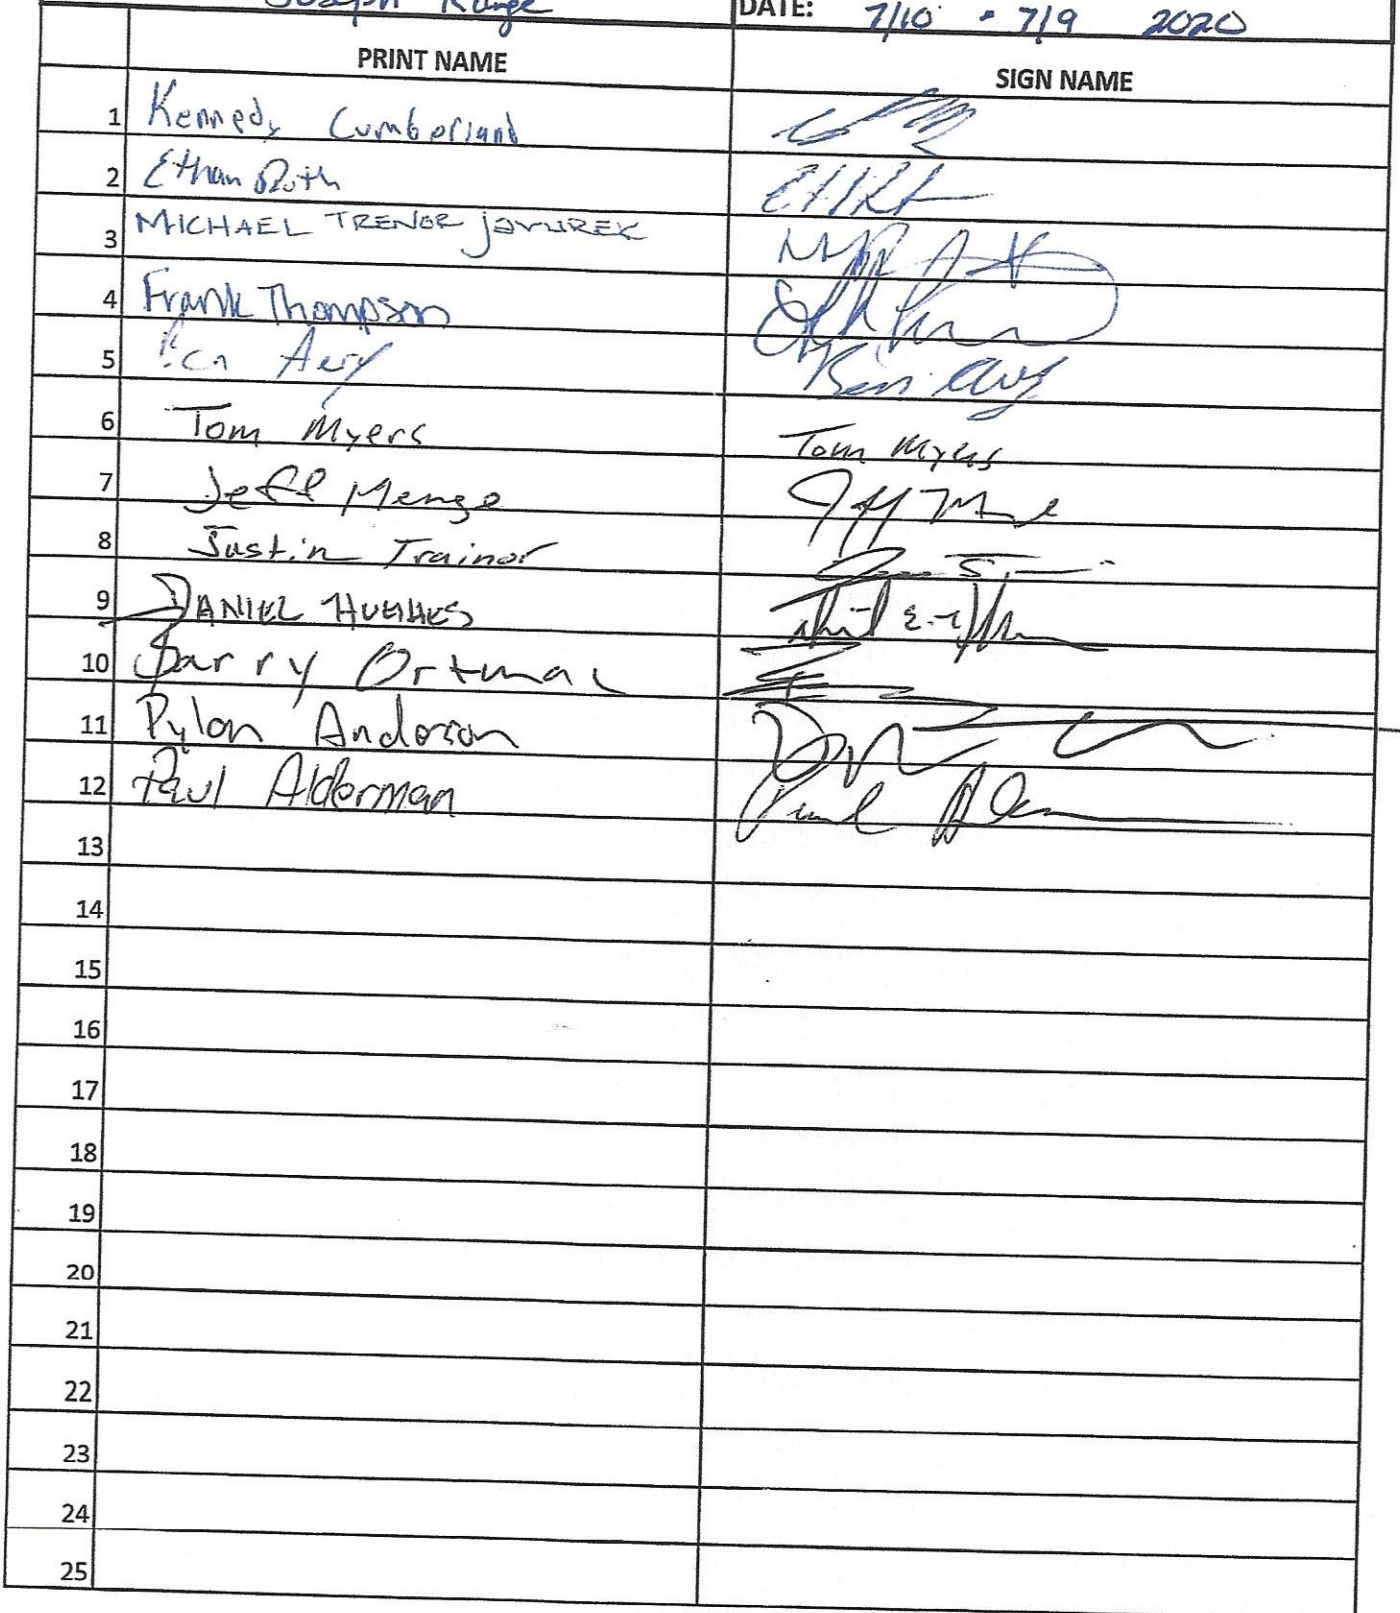 Joseph Range DATE: 7/10 - 7/9 2020
PRINT NAME SIGN NAME
1 Kennedy Cumberland
2 Ethan Ruth
3 MICHAEL TRENOR JAVUREK
4 Frank Thompson
5 Ben Avery Ben Avery
6 Tom Myers Tom Myers
7 Jeff Menge
8 Justin Trainor
9 DANIEL HUGHES
10 Barry Ortman
11 Dylan Anderson
12 Paul Alderman Paul
13
14
15
16
17
18
19
20
21
22
23
24
25